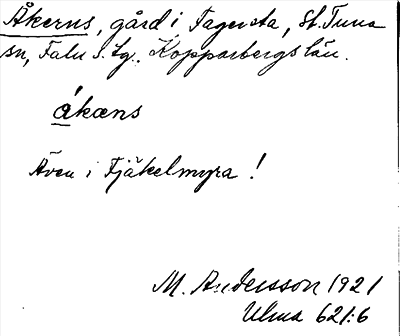 Åkerns, gård i Fagersta, St. Tuna
sn, Falu s. tg. Kopparbergs län.
ákæns
Även i Fjäkelmyra!
M. Andersson 1921
Ulma 621:6